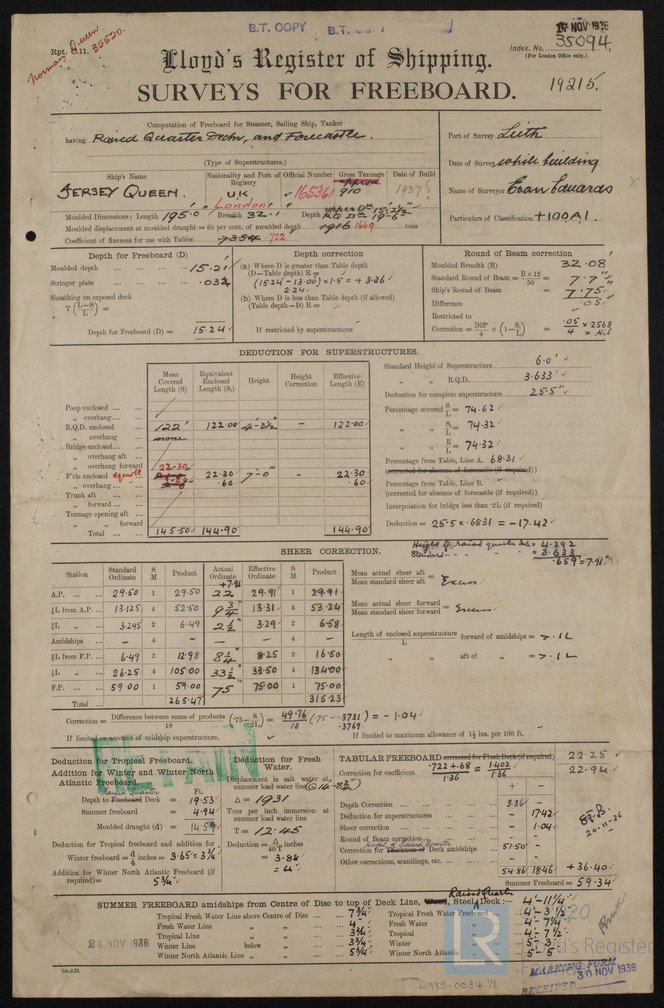 B.T. COPY
B.T.
17 NOV 1936
Norman Queen.
35520.
Rpt. C.11.
Index. No. 35094
(For London Office only.)
Lloyd's Register of Shipping.
19215.
SURVEYS FOR FREEBOARD.
Computation of Freeboard for Steamer, Sailing Ship, Tanker
having Raised Quarter Deckr, and Forecastle.
(Type of Superstructures.)
Port of Survey Leith
Date of Survey while building
Name of Surveyor Evan Edwards
Particulars of Classification +100A1
Ship's Name
Nationality and Port of Registry
Official Number
Gross Tonnage
Date of Build
JERSEY QUEEN.
UK
London
165361
910
1937
Moulded Dimensions: Length 195.0 Breadth 32.1 Depth Upper Dk 15'-2½" RQ Dk 19-6½
Moulded displacement at moulded draught = 85 per cent. of moulded depth 1916 1669 tons
Coefficient of fineness for use with Tables 7354 .722
Depth for Freeboard (D)
Moulded depth ... 15.21
Stringer plate ... .032
Sheathing on exposed deck
T (L—S / L) =
Depth for Freeboard (D) = 15.24
Depth correction
(a) Where D is greater than Table depth
(D—Table depth) R =
(15.24 - 13.00) × 1.5 = + 3.36
2.24
(b) Where D is less than Table depth (if allowed)
(Table depth—D) R =
If restricted by superstructures
Round of Beam correction
Moulded Breadth (B) 32.08'
Standard Round of Beam = B × 12 / 50 = 7.7"
Ship's Round of Beam = 7.75
Difference .05
Restricted to
Correction = Diffce / 4 × (1 — S₁ / L) = .05 / 4 × .2568 = Nil
DEDUCTION FOR SUPERSTRUCTURES.
Mean Covered Length (S)
Equivalent Enclosed Length (S₁)
Height
Height Correction
Effective Length (E)
Poop enclosed
„ overhang
R.Q.D. enclosed 122' 122.00 4'-3½" — 122.00
„ overhang none
Bridge enclosed
„ overhang aft
„ overhang forward
F'cle enclosed 22.30 22.30 7'-0" — 22.30
„ overhang .60 .60
Trunk aft
„ forward
Tonnage opening aft
„ „ forward
Total 145.50 144.90 144.90
Standard Height of Superstructure 6.0'
„ „ R.Q.D. 3.633'
Deduction for complete superstructure 25.5"
Percentage covered S / L = 74.62
„ „ S₁ / L = 74.32
„ „ E / L = 74.32
Percentage from Table, Line A. 68.31
(corrected for absence of forecastle (if required))
Percentage from Table, Line B.
(corrected for absence of forecastle (if required))
Interpolation for bridge less than ·2L (if required)
Deduction = 25.5 × .6831 = - 17.42
Height of raised quarter dk = 4.292
Standard = 3.633
.659 = 7.91"
SHEER CORRECTION.
Station
Standard Ordinate
S M
Product
Actual Ordinate
Effective Ordinate
S M
Product
+7.91
A.P. 29.50 1 29.50 22 29.91 1 29.91
⅙L from A.P. 13.125 4 52.50 9¾ 13.31 4 53.24
⅓L „ 3.245 2 6.49 2½" 3.29 2 6.58
Amidships — 4 — — — 4 —
⅓L from F.P. 6.49 2 12.98 8¼ 8.25 2 16.50
⅙L „ 26.25 4 105.00 33½ 33.50 4 134.00
F.P. 59.00 1 59.00 75 75.00 1 75.00
Total 265.47 315.23
Mean actual sheer aft / Mean standard sheer aft = Excess
Mean actual sheer forward / Mean standard sheer forward = Excess
Length of enclosed superstructure / L forward of amidships = > .1L
„ „ aft of „ = > .1L
Correction = Difference between sums of products / 18 (·75 — S / 2L) = 49.76 / 18 (.75 - .3731) = - 1.04
.3769
If limited on account of midship superstructure.
If limited to maximum allowance of 1½ ins. per 100 ft.
RETAIN
Deduction for Tropical Freeboard.
Addition for Winter and Winter North Atlantic Freeboard.
Raised Quarter
Ft.
Depth to Freeboard Deck = 19.53
Summer freeboard = 4.94
Moulded draught (d) = 14.59
Deduction for Tropical freeboard and addition for
Winter freeboard = d / 4 inches = 3.65 = 3¾
Addition for Winter North Atlantic Freeboard (if required) = 5¾
Deduction for Fresh Water.
Displacement in salt water at summer load water line
Δ = 1931
Tons per inch immersion at summer load water line
T = 12.45
Deduction = Δ / 40T inches
= 3.88
= 4"
TABULAR FREEBOARD corrected for Flush Deck (if required) 22.25
Correction for coefficient .722 + .68 / 1.36 = 1.402 / 1.36 22.94
+ —
Depth Correction 3.36 —
Deduction for superstructures — 17.42
Sheer correction — 1.04
Round of Beam correction — —
Height of Raised Quarter
Correction for Thickness of Deck amidships 51.50 —
Other corrections, scantlings, etc. — —
54.86 18.46 +36.40
Summer Freeboard = 59.34
20-11-36
SUMMER FREEBOARD amidships from Centre of Disc to top of Deck Line, Wood, Steel, Raised Quarter Deck :— 4'-11¼"
Tropical Fresh Water Line above Centre of Disc 7¾"
Fresh Water Line „ „ 4
Tropical Line „ „ 3¾
Winter Line below „ 3¾
Winter North Atlantic Line „ „ 5¾
Tropical Fresh Water Freeboard 4'-3½
Fresh Water „ 4'-7¼
Tropical „ 4'-7½
Winter „ 5'-3
Winter North Atlantic „ 5'-5
24 NOV 1936
R
Lloyd's Register
MARKING FORM
RECEIVED 30 NOV 1936
W985-0034 1/2